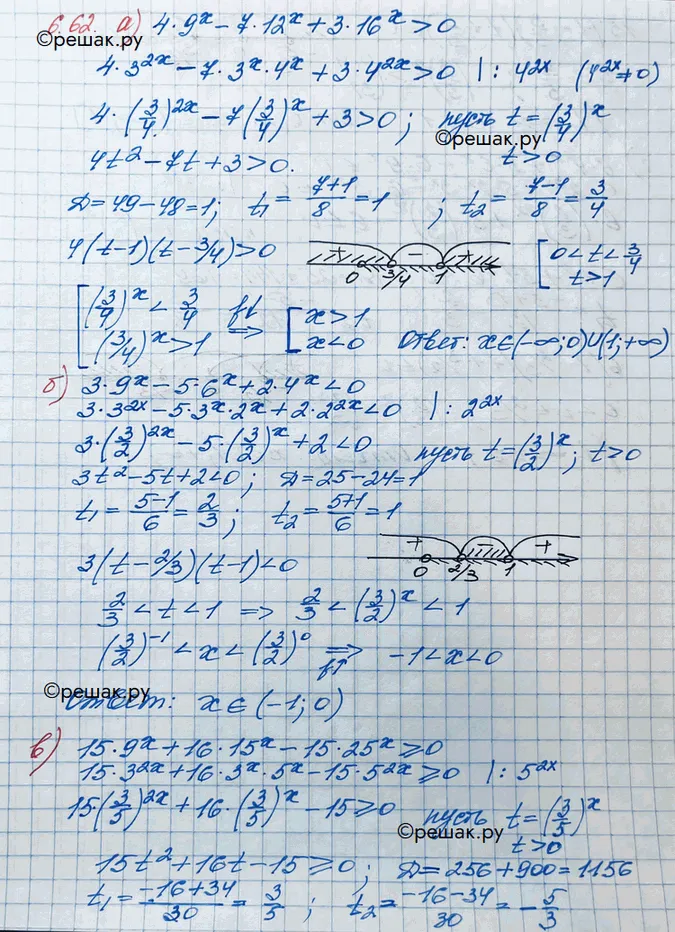 6.62. а) 4·9^x − 7·12^x + 3·16^x > 0
©решак.ру
4·3^{2x} − 7·3^x·4^x + 3·4^{2x} > 0 |: 4^{2x} (4^{2x} ≠ 0)
4·(3/4)^{2x} − 7(3/4)^x + 3 > 0; пусть t = (3/4)^x
©решак.ру
4t² − 7t + 3 > 0. t > 0
Д = 49 − 48 = 1; t₁ = (7+1)/8 = 1; t₂ = (7−1)/8 = 3/4
4(t−1)(t−3/4) > 0 + − + 0 3/4 1 [ 0 < t < 3/4
t > 1
[ (3/4)^x < 3/4 f↓ ⇒ [ x > 1
(3/4)^x > 1 x < 0 Ответ: x∈(−∞; 0)∪(1; +∞)
б) 3·9^x − 5·6^x + 2·4^x < 0
3·3^{2x} − 5·3^x·2^x + 2·2^{2x} < 0 |: 2^{2x}
3·(3/2)^{2x} − 5·(3/2)^x + 2 < 0 пусть t = (3/2)^x; t > 0
3t² − 5t + 2 < 0; Д = 25 − 24 = 1
t₁ = (5−1)/6 = 2/3; t₂ = (5+1)/6 = 1
3(t−2/3)(t−1) < 0 + − + 0 2/3 1
2/3 < t < 1 ⇒ 2/3 < (3/2)^x < 1
(3/2)^{−1} < x < (3/2)^0 ⇒ f↑ −1 < x < 0
©решак.ру
Ответ: x ∈ (−1; 0)
в) 15·9^x + 16·15^x − 15·25^x ⩾ 0
15·3^{2x} + 16·3^x·5^x − 15·5^{2x} ⩾ 0 |: 5^{2x}
15·(3/5)^{2x} + 16·(3/5)^x − 15 ⩾ 0 пусть t = (3/5)^x
©решак.ру
t > 0
15t² + 16t − 15 ⩾ 0; Д = 256 + 900 = 1156
t₁ = (−16+34)/30 = 3/5; t₂ = (−16−34)/30 = −5/3